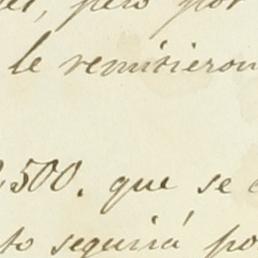 , pero por
le remitieron
,500. que se
to seguirá po